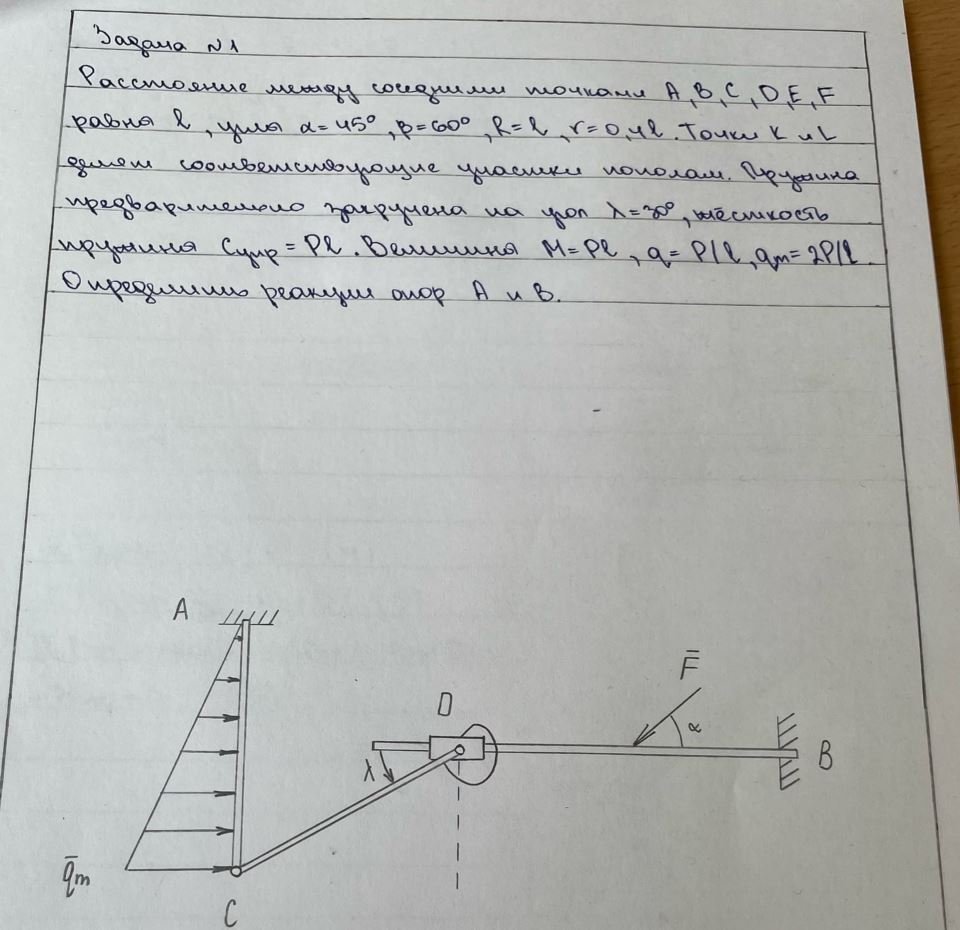 Задача N1
Расстояние между соседними точками A, B, C, D, E, F
равня l, угля α=45°, β=60°, R=l, r=0,4l. Точки K и L
делят соответствующие участки пополам. Пружина
предварительно закручена на угол λ=30°, жёсткость
пружиня Cупр = Pl. Величина M=Pl, q=P/l, qm=2P/l.
Определить реакции опор A и B.
A
F̄
D
α
B
λ
q̄m
C